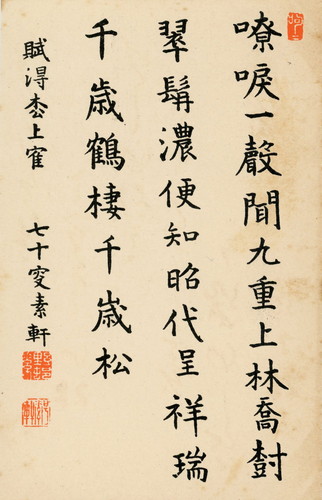 嘹唳一聲聞九重上林喬樹
翠鬅濃便知昭代呈祥瑞
千歲鶴棲千歲松
賦得松上隺
七十叟素軒